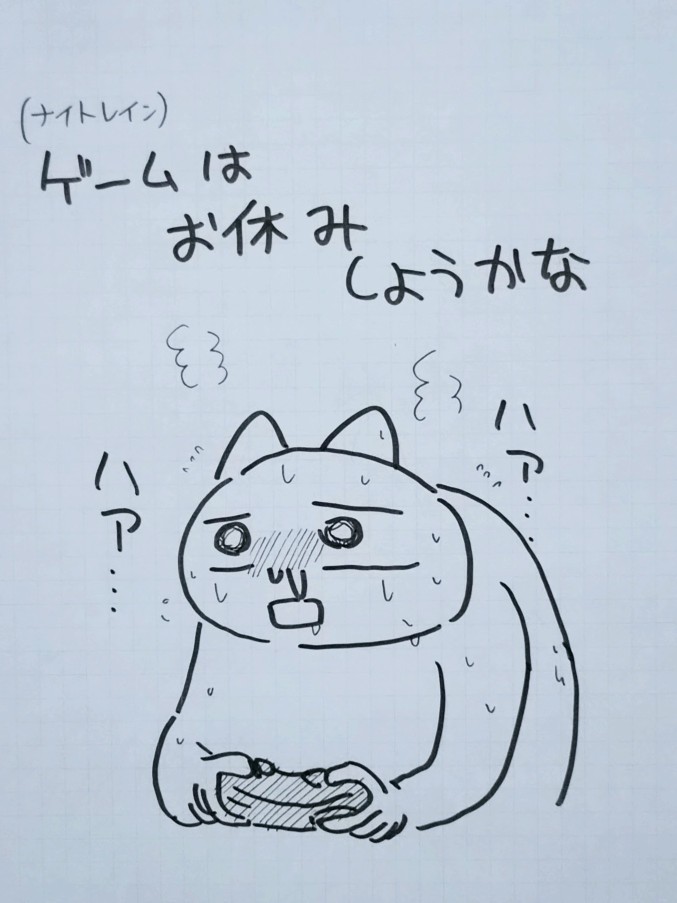 (ナイトレイン)
ゲームは
お休み
しようかな
ハァ…
ハァ…